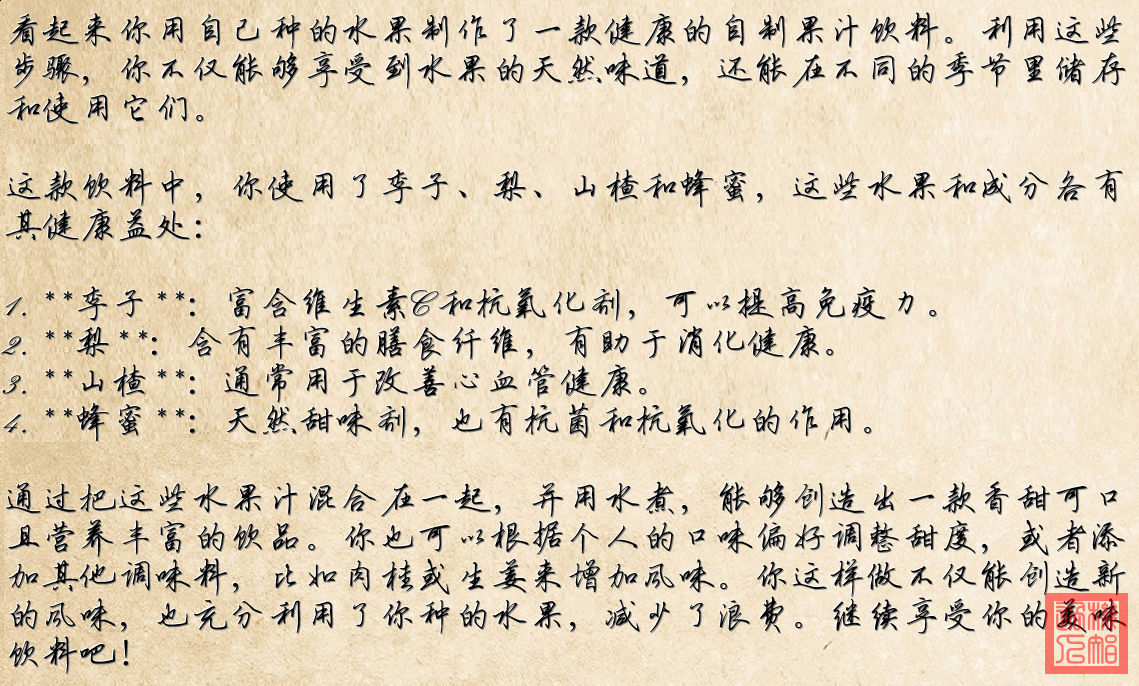 看起来你用自己种的水果制作了一款健康的自制果汁饮料。利用这些
步骤，你不仅能够享受到水果的天然味道，还能在不同的季节里储存
和使用它们。
这款饮料中，你使用了李子、梨、山楂和蜂蜜，这些水果和成分各有
其健康益处：
1. **李子**：富含维生素C和抗氧化剂，可以提高免疫力。
2. **梨**：含有丰富的膳食纤维，有助于消化健康。
3. **山楂**：通常用于改善心血管健康。
4. **蜂蜜**：天然甜味剂，也有抗菌和抗氧化的作用。
通过把这些水果汁混合在一起，并用水煮，能够创造出一款香甜可口
且营养丰富的饮品。你也可以根据个人的口味偏好调整甜度，或者添
加其他调味料，比如肉桂或生姜来增加风味。你这样做不仅能创造新
的风味，也充分利用了你种的水果，减少了浪费。继续享受你的美味
饮料吧！